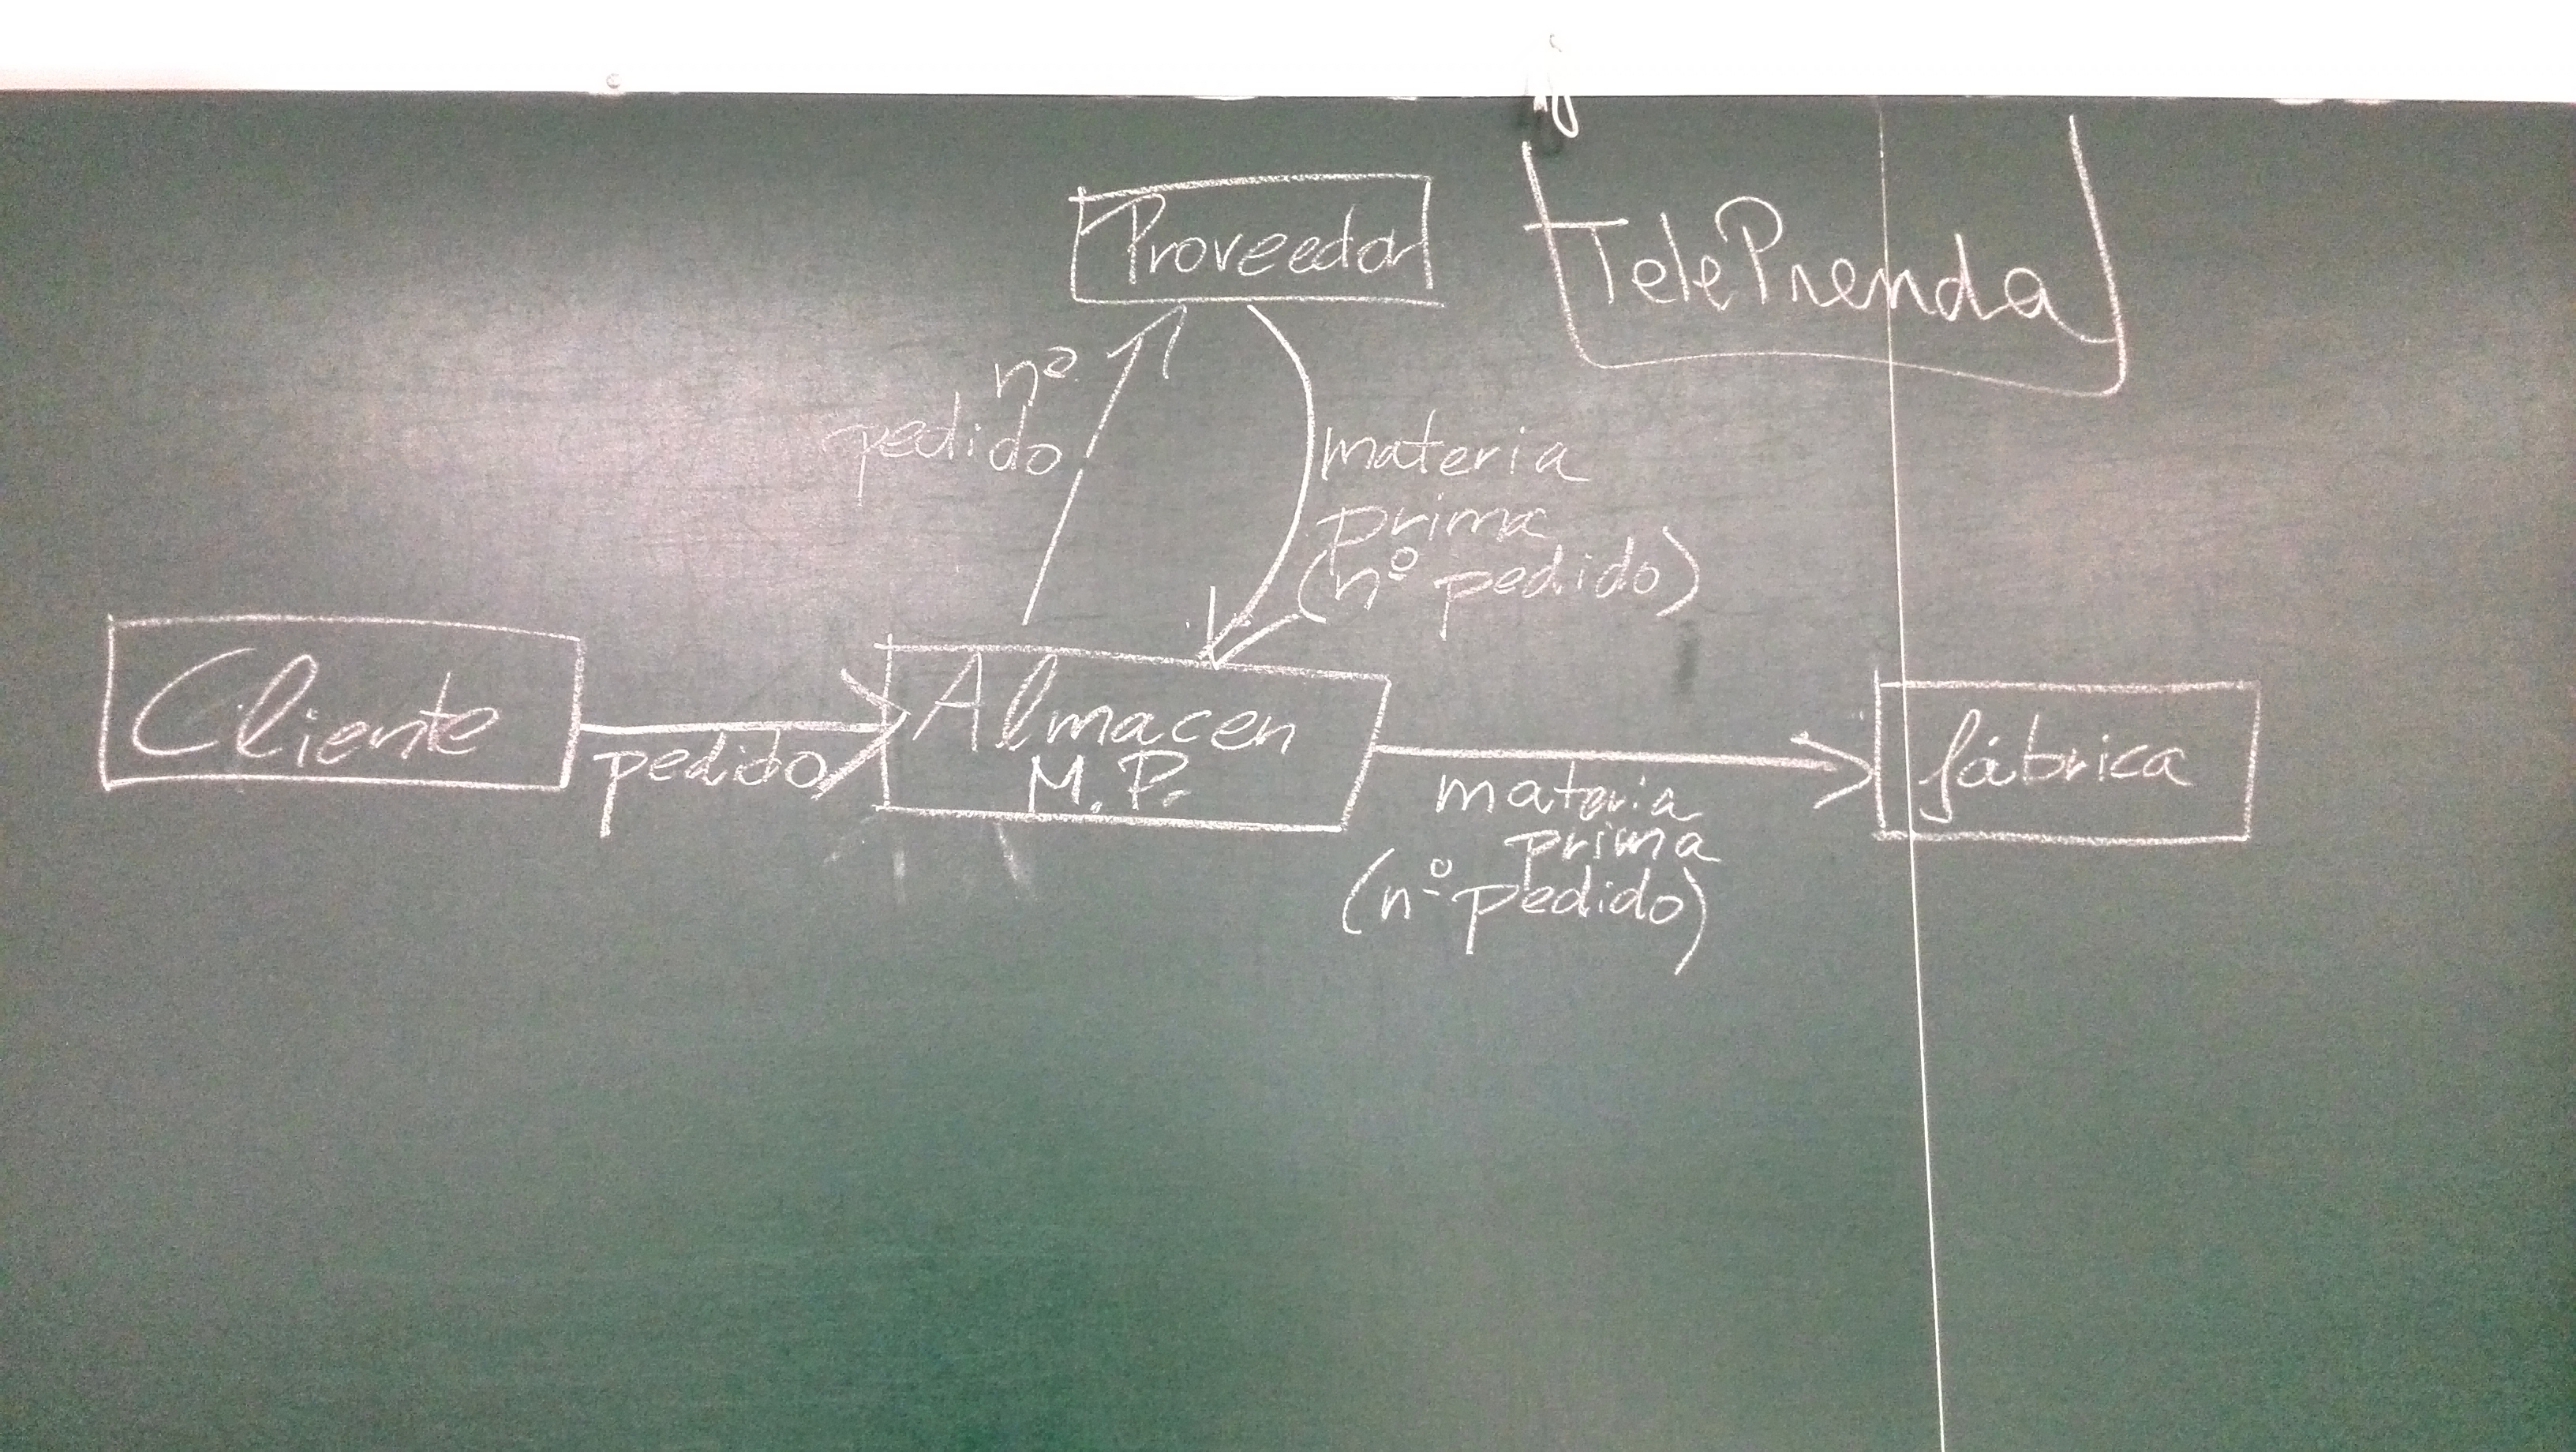 Proveedor
TelePrenda
nº
pedido
materia
prima
(nº pedido)
Cliente
pedido
Almacen
M.P.
materia
prima
(nº pedido)
fábrica